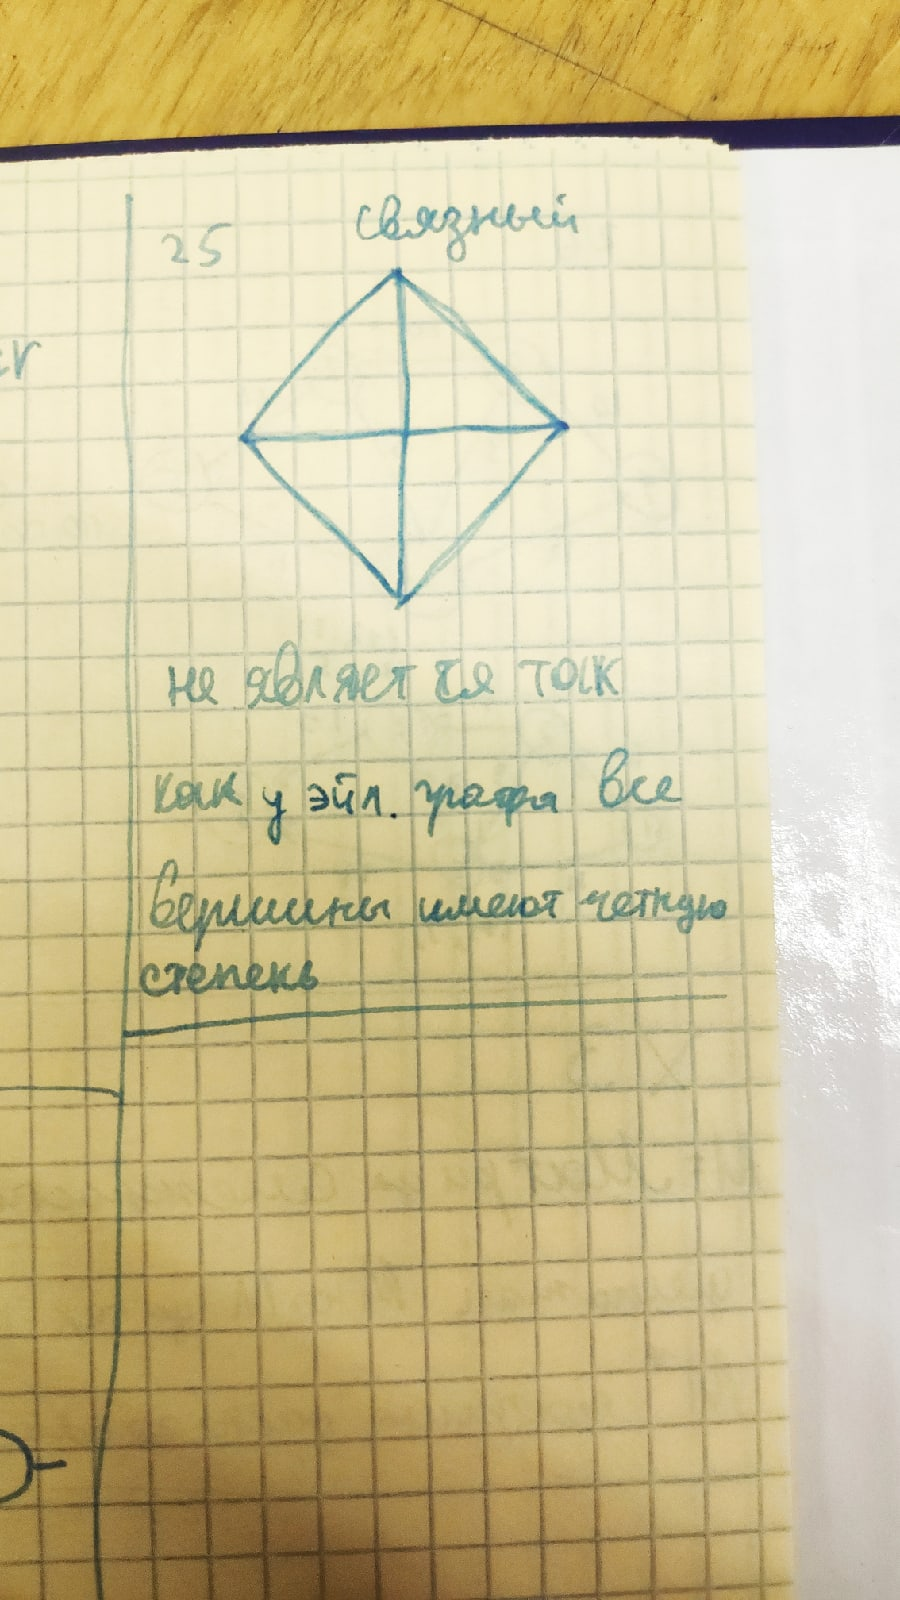 25
связный
не является так
как у эйл. графа все
вершины имеют четную
степень